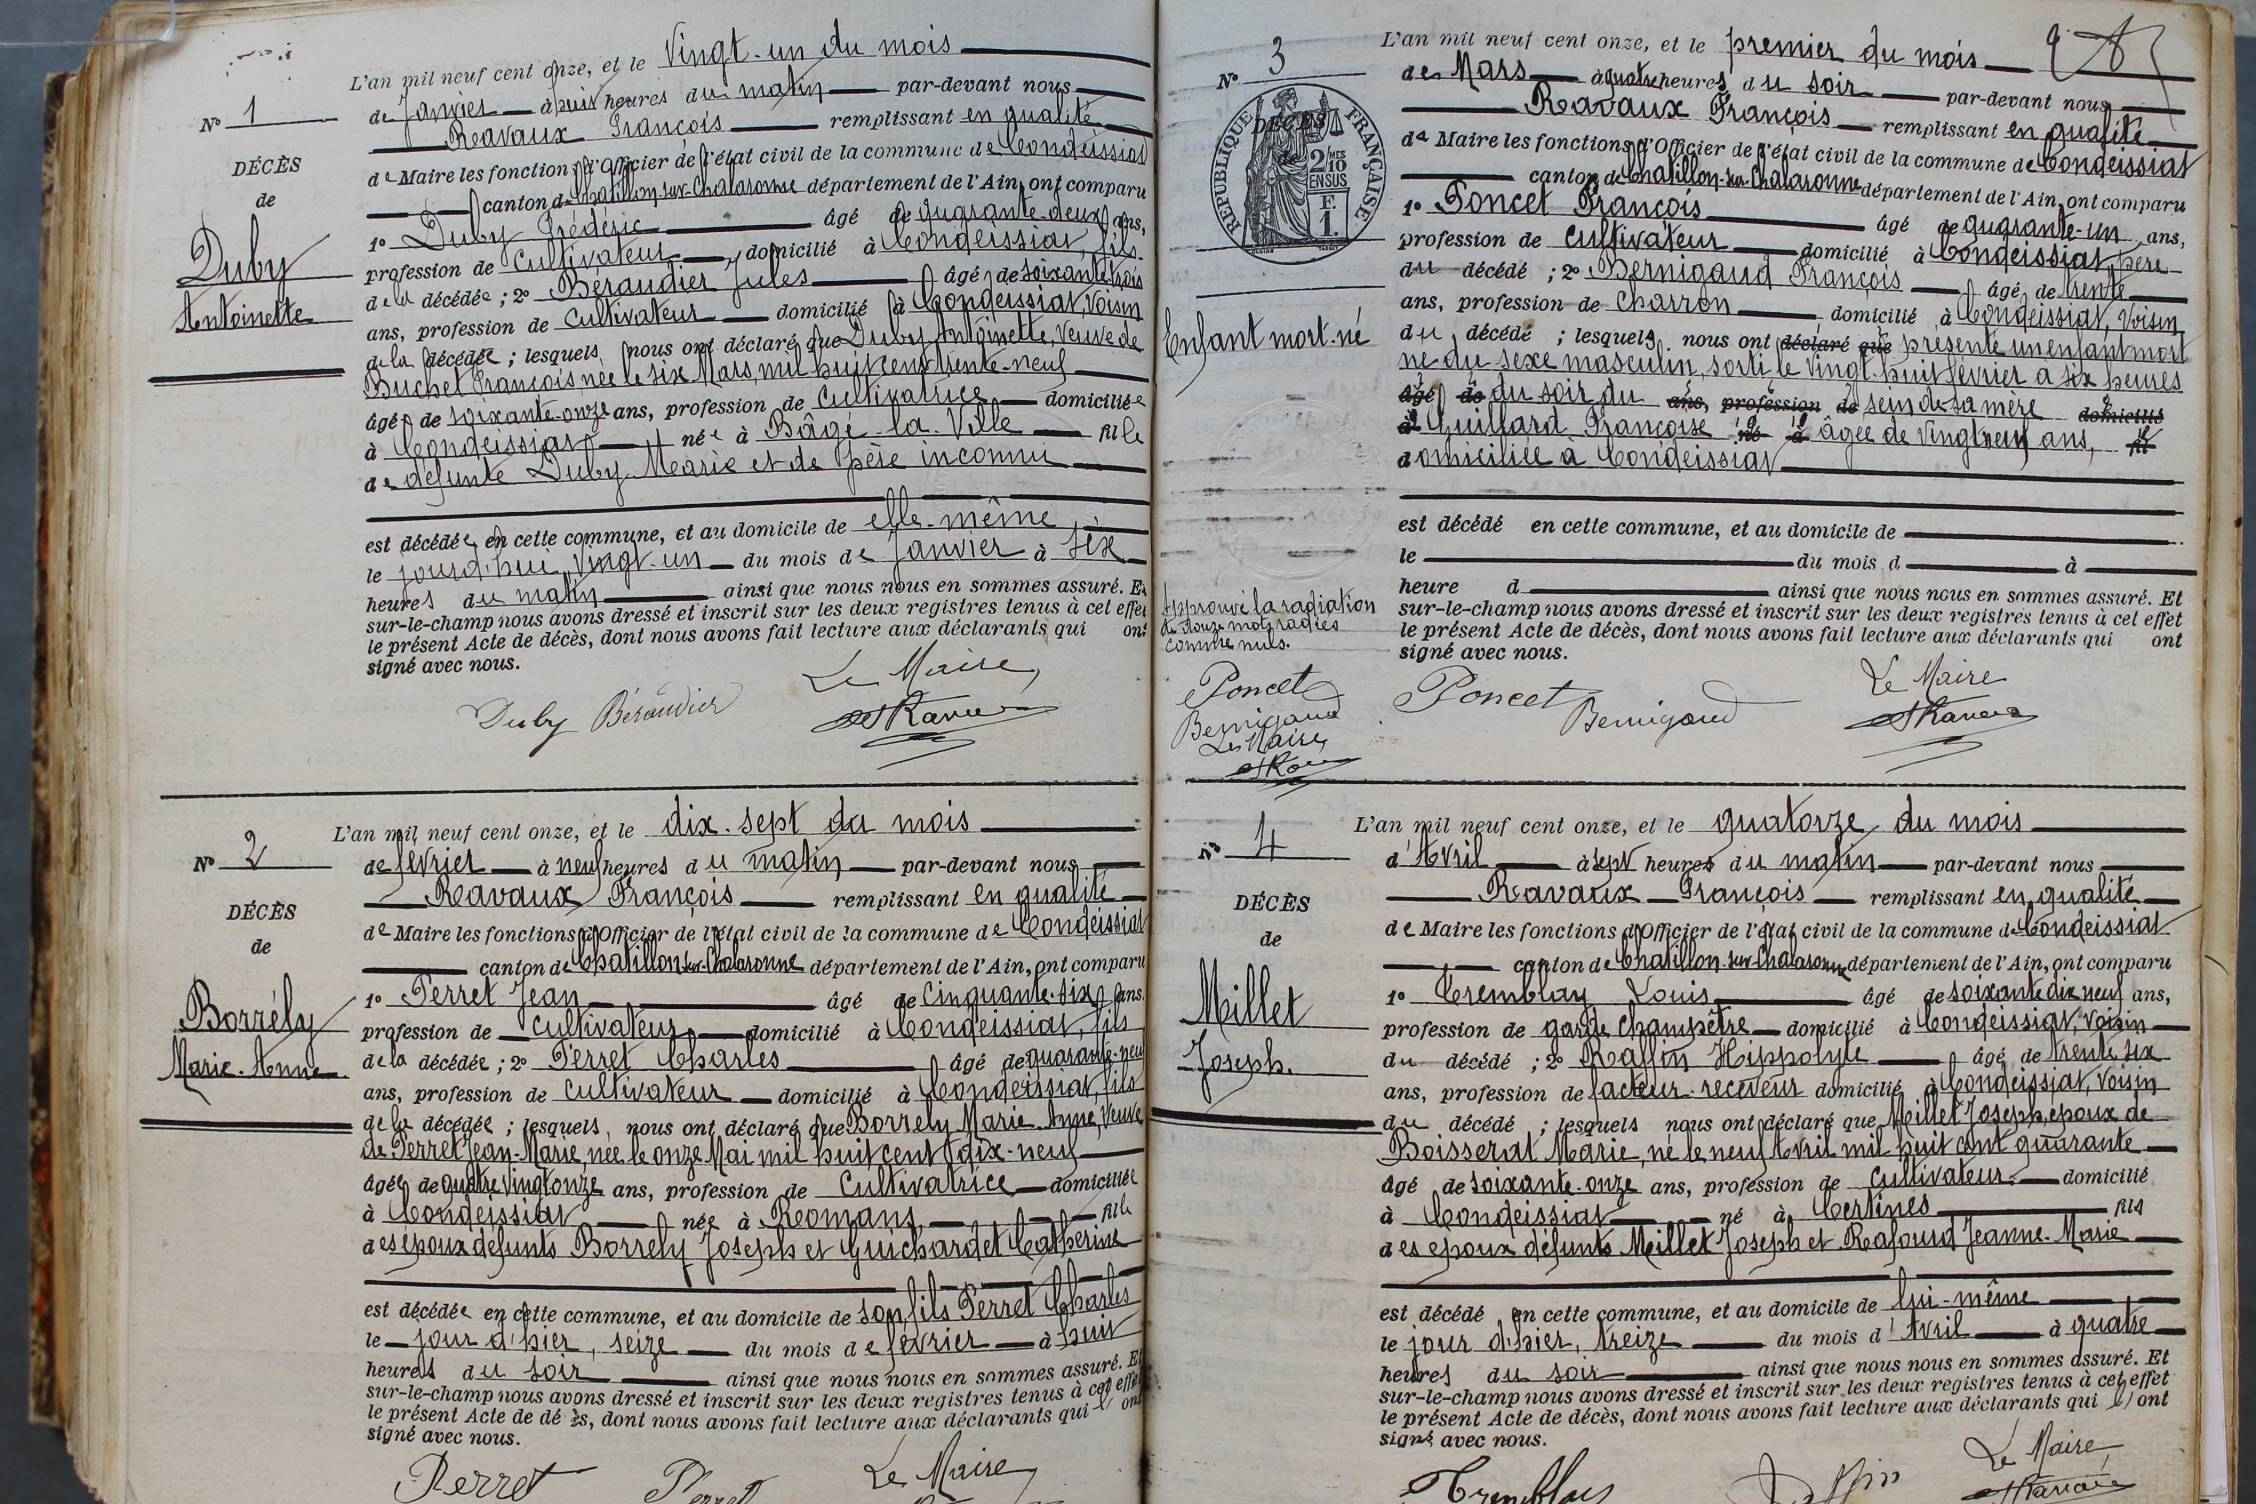 L'an mil neuf cent onze, et le vingt-un du mois
de Janvier à huit heures du matin par-devant nous
Ravaux François remplissant en qualité
de Maire les fonctions d'Officier de l'état civil de la commune de Condeissiat
canton de Chatillon-sur-Chalaronne département de l'Ain, ont comparu
1º Duby Frédéric âgé de quarante-deux ans,
profession de cultivateur domicilié à Condeissiat, fils
de la décédée ; 2º Béraudier Jules âgé de soixante trois
ans, profession de cultivateur domicilié à Condeissiat, voisin
de la décédée ; lesquels nous ont déclaré que Duby Antoinette, veuve de
Buchet François, née le six Mars, mil huit cent trente-neuf
âgée de soixante-onze ans, profession de cultivatrice domiciliée
à Condeissiat née à Bâgé-la-Ville fille
de défunte Duby Marie et de père inconnu
est décédée en cette commune, et au domicile de elle-même,
le jourd'hui vingt-un du mois de Janvier à six
heures du matin ainsi que nous nous en sommes assuré. Et
sur-le-champ nous avons dressé et inscrit sur les deux registres tenus à cet effet
le présent Acte de décès, dont nous avons fait lecture aux déclarants qui ont
signé avec nous.
Duby Béraudier Le Maire,
Ravaux
Nº 1
DÉCÈS
de
Duby
Antoinette
L'an mil neuf cent onze, et le dix-sept du mois
de février à neuf heures du matin par-devant nous
Ravaux François remplissant en qualité
de Maire les fonctions d'Officier de l'état civil de la commune de Condeissiat
canton de Chatillon-sur-Chalaronne département de l'Ain, ont comparu
1º Perret Jean âgé de cinquante-six ans,
profession de cultivateur domicilié à Condeissiat, fils
de la décédée ; 2º Perret Charles âgé de quarante-neuf
ans, profession de cultivateur domicilié à Condeissiat, fils
de la décédée ; lesquels nous ont déclaré que Borrely Marie-Anne, veuve
de Perret Jean-Marie, née le onze Mai mil huit cent dix-neuf
âgée de quatre vingt onze ans, profession de cultivatrice domiciliée
à Condeissiat née à Romans fille
des époux défunts Borrely Joseph et Guichardet Catherine
est décédée en cette commune, et au domicile de son fils Perret Charles
le jour d'hier, seize du mois de février à huit
heures du soir ainsi que nous nous en sommes assuré. Et
sur-le-champ nous avons dressé et inscrit sur les deux registres tenus à cet effet
le présent Acte de décès, dont nous avons fait lecture aux déclarants qui ont
signé avec nous.
Perret Perret Le Maire
Nº 2
DÉCÈS
de
Borrély
Marie-Anne
L'an mil neuf cent onze, et le premier du mois
de Mars à quatre heures du soir par-devant nous
Ravaux François remplissant en qualité
de Maire les fonctions d'Officier de l'état civil de la commune de Condeissiat
canton de Chatillon-sur-Chalaronne département de l'Ain, ont comparu
1º Poncet François âgé de quarante-un ans,
profession de cultivateur domicilié à Condeissiat, père
du décédé ; 2º Bernigaud François âgé de trente
ans, profession de charron domicilié à Condeissiat, voisin
du décédé ; lesquels nous ont déclaré que présenté un enfant mort
né du sexe masculin, sorti le vingt-huit février à six heures
âgé de du soir du ans, profession de sein de sa mère domicilié
à Guillard Françoise né à âgée de vingt neuf ans, fil
domiciliée à Condeissiat
est décédé en cette commune, et au domicile de
le du mois d à
heure d ainsi que nous nous en sommes assuré. Et
sur-le-champ nous avons dressé et inscrit sur les deux registres tenus à cet effet
le présent Acte de décès, dont nous avons fait lecture aux déclarants qui ont
signé avec nous.
Poncet Bernigaud Le Maire
Ravaux
Nº 3
DÉCÈS
de
RÉPUBLIQUE FRANÇAISE
2/10MES
EN SUS
F.
1.
Enfant mort-né
Approuvé la radiation
de douze mots radiés
comme nuls.
Poncet
Bernigaud
Le Maire,
Ravaux
L'an mil neuf cent onze, et le quatorze du mois
d'Avril à sept heures du matin par-devant nous
Ravaux François remplissant en qualité
de Maire les fonctions d'Officier de l'état civil de la commune de Condeissiat
canton de Chatillon-sur-Chalaronne département de l'Ain, ont comparu
1º Tremblay Louis âgé de soixante dix neuf ans,
profession de garde champêtre domicilié à Condeissiat, voisin
du décédé ; 2º Raffin Hippolyte âgé de trente six
ans, profession de facteur-receveur domicilié à Condeissiat, voisin
du décédé ; lesquels nous ont déclaré que Millet Joseph, époux de
Boisserat Marie, né le neuf Avril mil huit cent quarante
âgé de soixante-onze ans, profession de cultivateur domicilié
à Condeissiat né à Certines fils
des époux défunts Millet Joseph et Rafourd Jeanne-Marie
est décédé en cette commune, et au domicile de lui-même
le jour d'hier, treize du mois d'Avril à quatre
heures du soir ainsi que nous nous en sommes assuré. Et
sur-le-champ nous avons dressé et inscrit sur les deux registres tenus à cet effet
le présent Acte de décès, dont nous avons fait lecture aux déclarants qui ont
signé avec nous.
Tremblay Raffin Le Maire
Ravaux
Nº 4
DÉCÈS
de
Millet
Joseph.